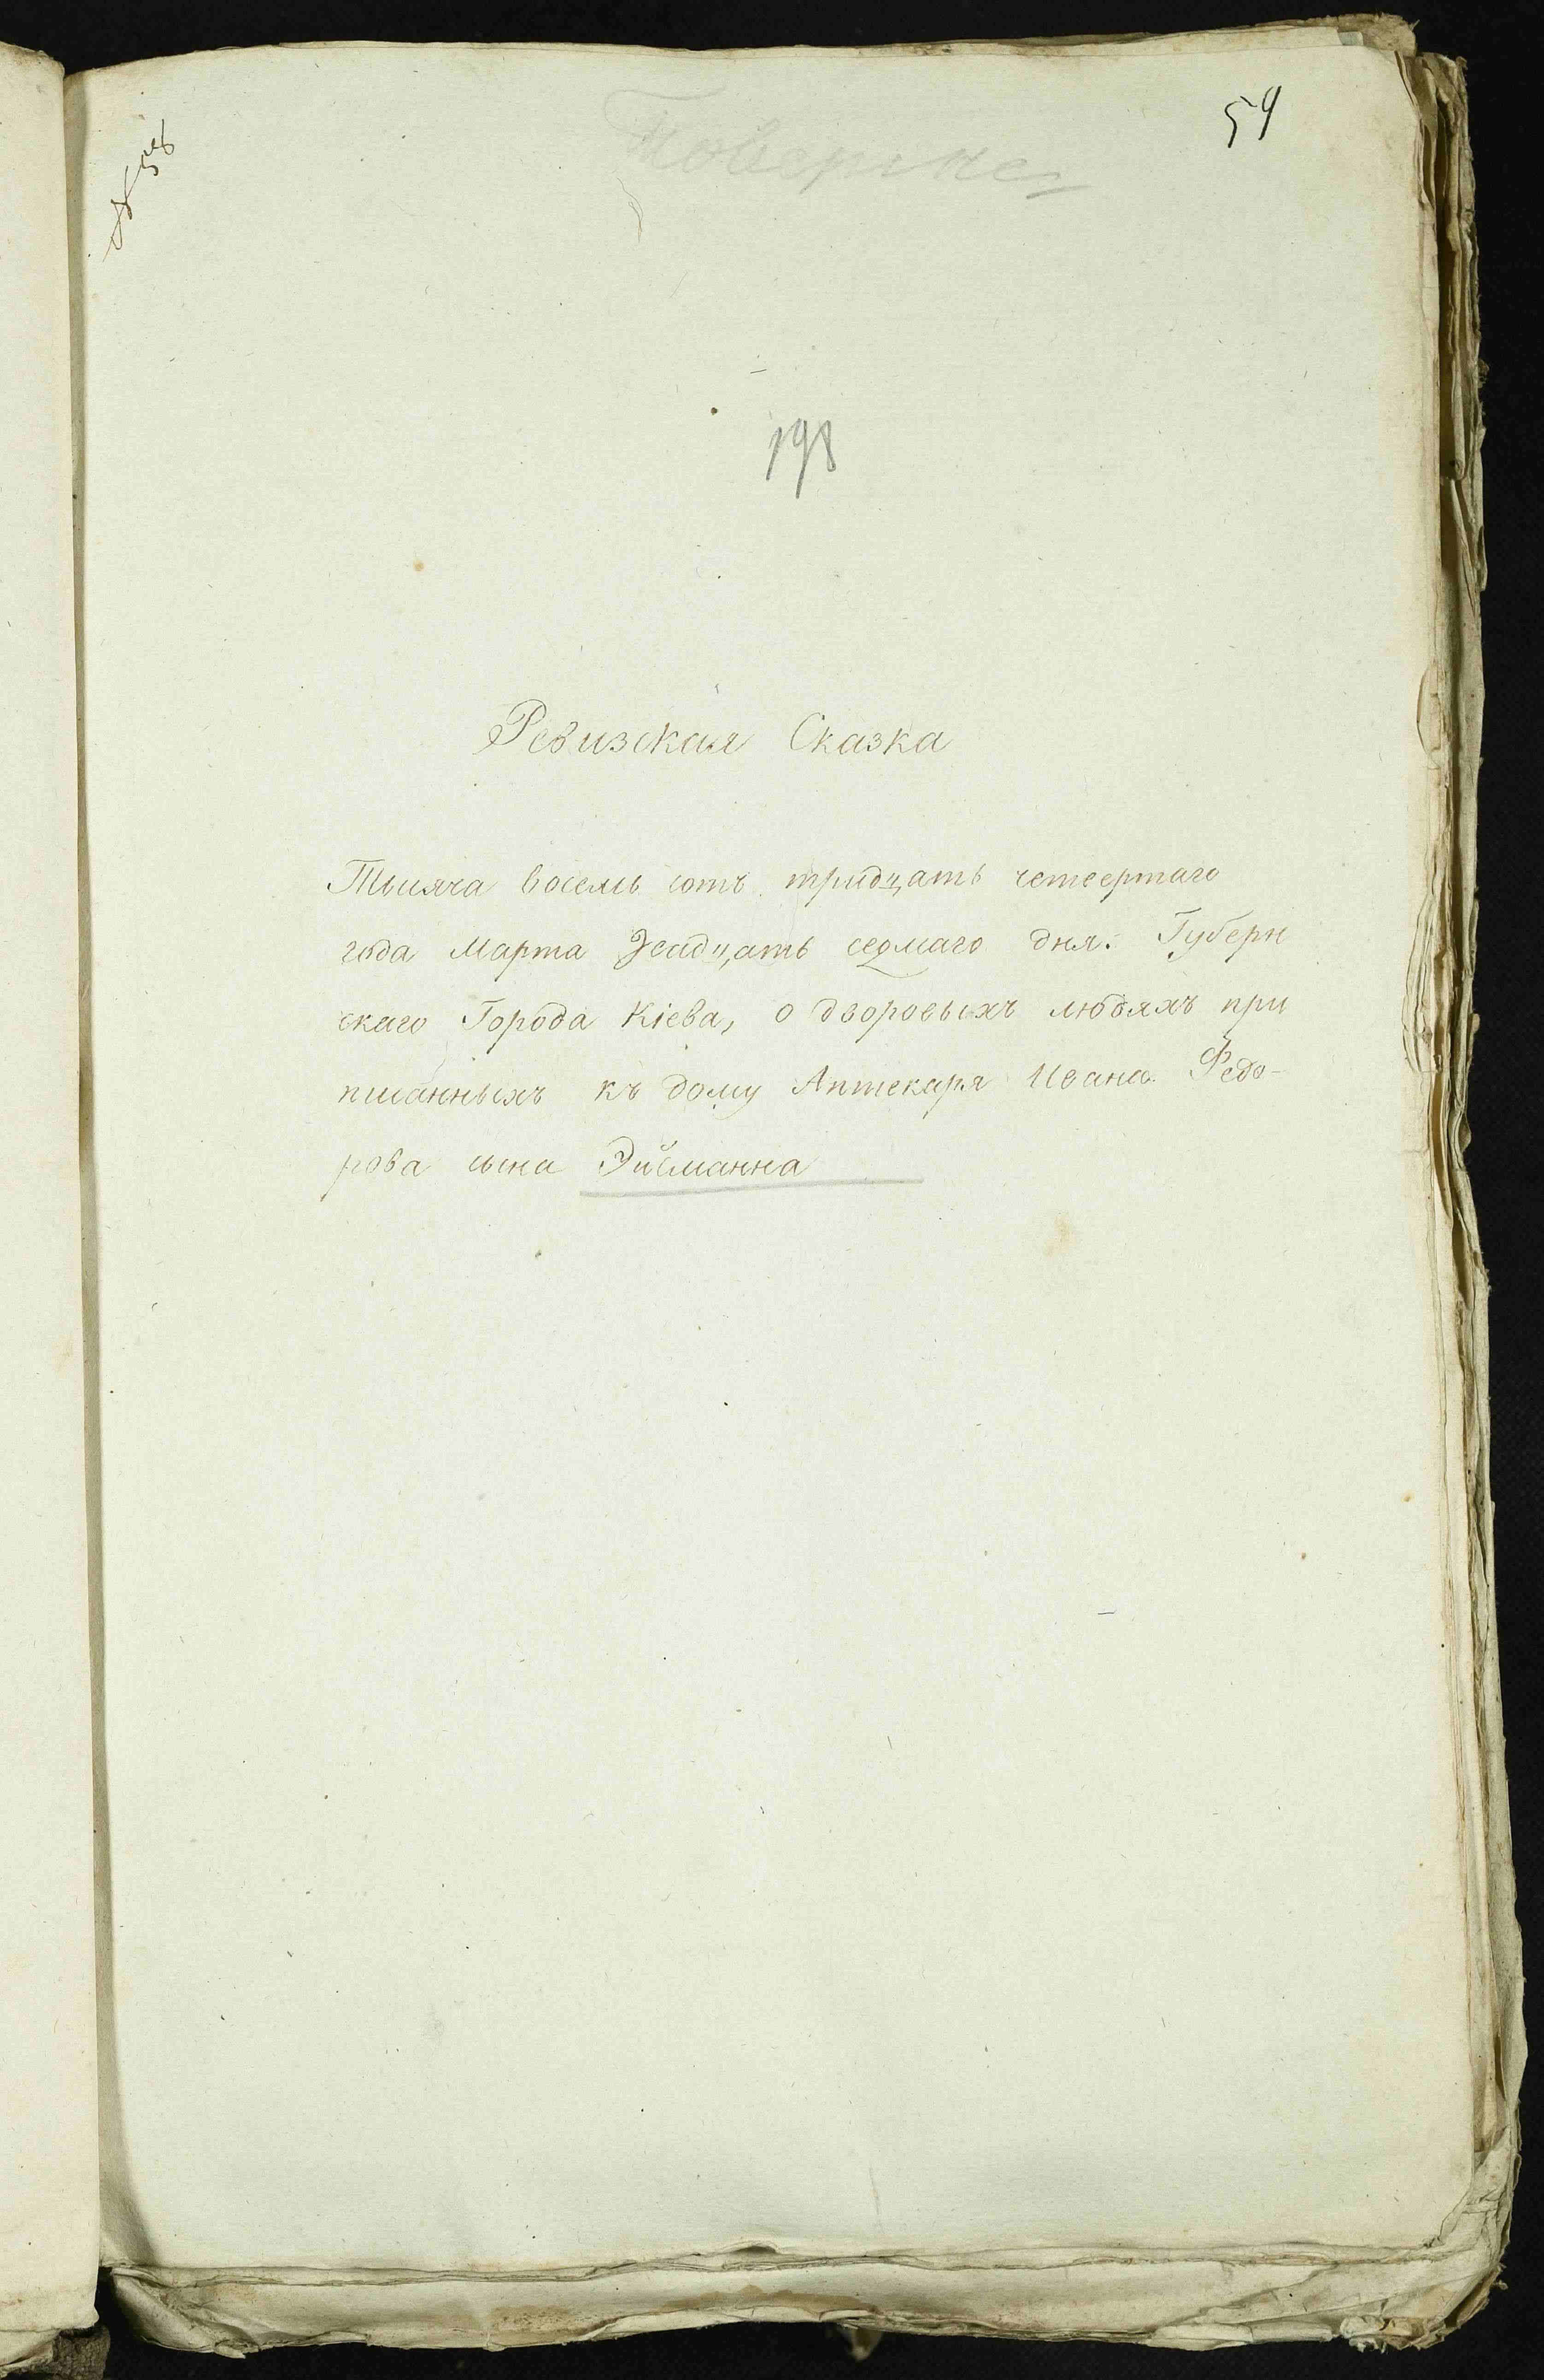 № 58
54
198
Ревизская Сказка
Тысяча восемь сотъ тридцать четвертаго
года Марта Двадцать седмаго дня. Губерн
скаго Города Кіева, о дворовыхъ людяхъ при
писанныхъ къ дому Аптекаря Ивана Федо-
рова сына Эйсманна